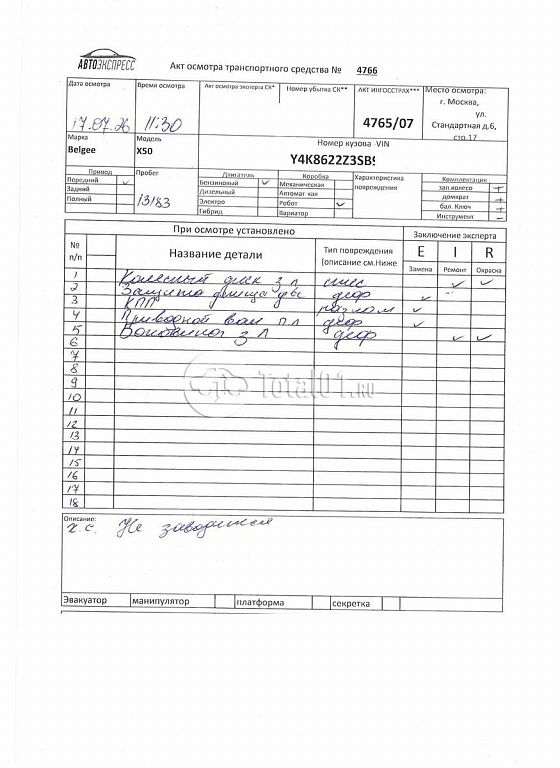 АВТОЭКСПРЕСС
Акт осмотра транспортного средства № 4766
Дата осмотра Время осмотра Акт осмотра эксперта СК* Номер убытка СК** АКТ ИНГОССТРАХ*** Место осмотра:
г. Москва,
ул.
17.07.26 11:30 4765/07 Стандартная д.6,
стр.17
Марка Модель Номер кузова -VIN
Belgee X50 Y4K8622Z3SB
Привод Пробег Двигатель Коробка Характеристика повреждения Комплектация
Передний ✓ Бензиновый ✓ Механическая зап.колесо +
Задний Дизельный Автомат кая домкрат +
Полный 13183 Электро Робот ✓ бал. Ключ +
Гибрид Вариатор Инструмент -
При осмотре установлено Заключение эксперта
№ п/п Название детали Тип повреждения (описание см.Ниже E I R
Замена Ремонт Окраска
1 Колесный диск з л ✓ ✓
2 Защита днища дв деф
3 КПП разлом ✓
4 Приводной вал п л деф ✓
5 деф
6 ✓ ✓
7
8
9
10
11
12
13
14
15
16
17
18
Total01.RU
Описание:
х.с. Не заводится
Эвакуатор манипулятор платформа секретка